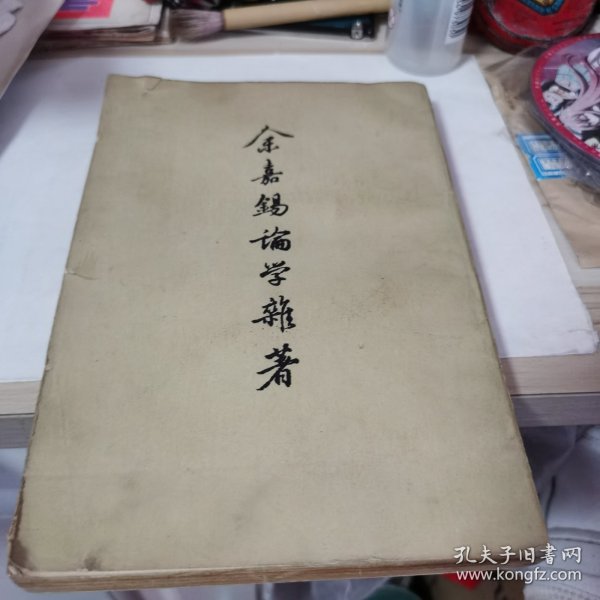 余嘉錫論学雜著
孔夫子旧书网
www.kongfz.com